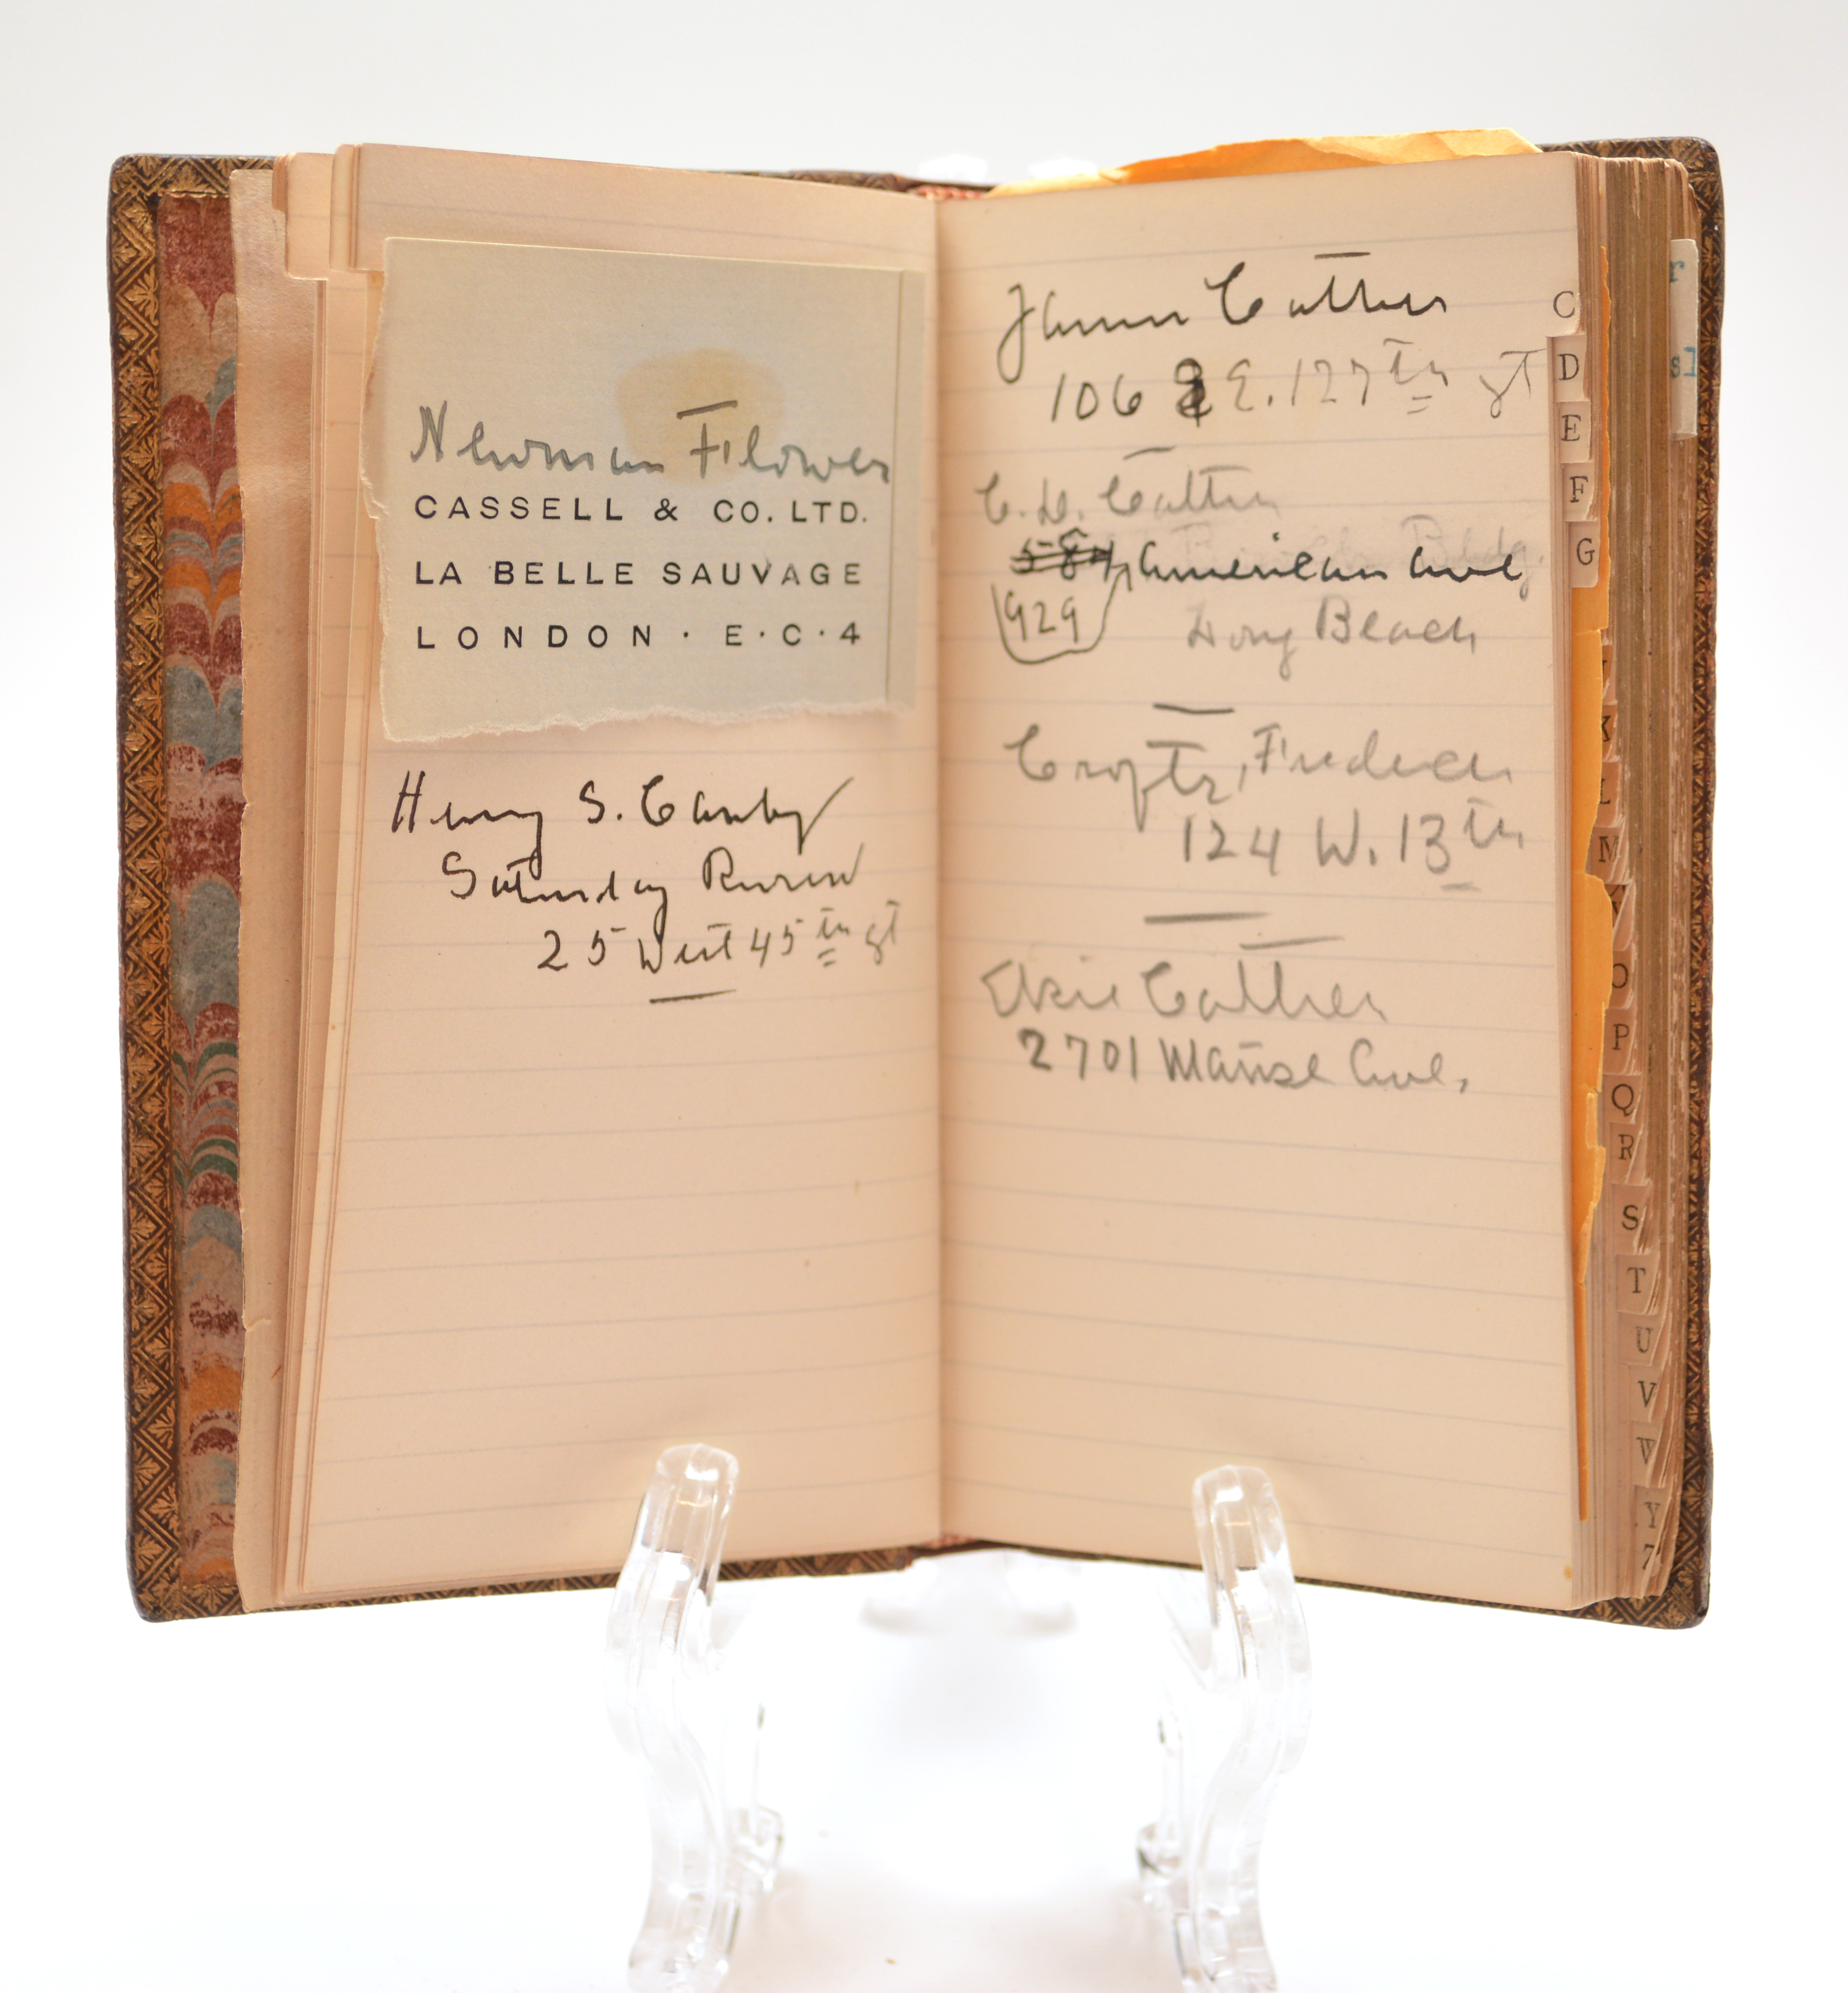 Newman Flower
CASSELL & CO. LTD.
LA BELLE SAUVAGE
LONDON · E·C·4
Henry S. Canby
Saturday Review
25 West 45th St
James Cather
106 E. 127th St
C. D. Cather
584 American Ave
929
Long Beach
Crofts, Frederick
124 W. 13th
Elsie Cather
2701 Manse Ave.
C
D
E
F
G
K
L
M
O
P
Q
R
S
T
U
V
W
Y
Z
r
sl